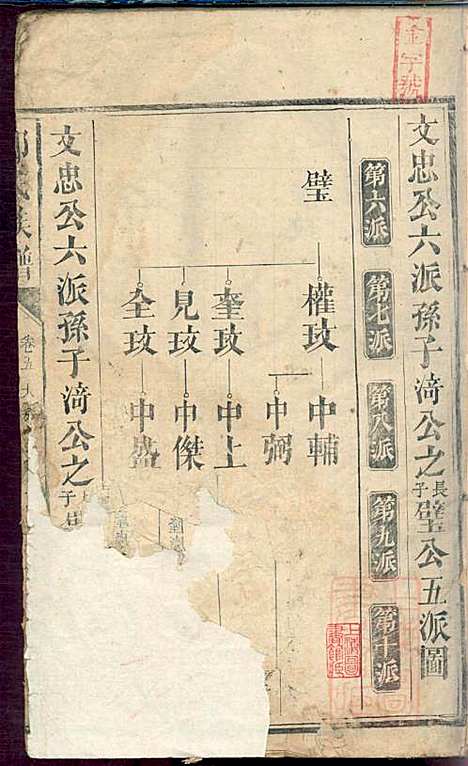 金字號
文忠公六派孫子渏公之長子璧公五派圖
第六派 第七派 第八派 第九派 第十派
璧
權玫 中輔
中弼
奎玫 中上
見玫 中傑
全玫 中盛
文忠公六派孫子渏公之長子
氏族譜
卷五